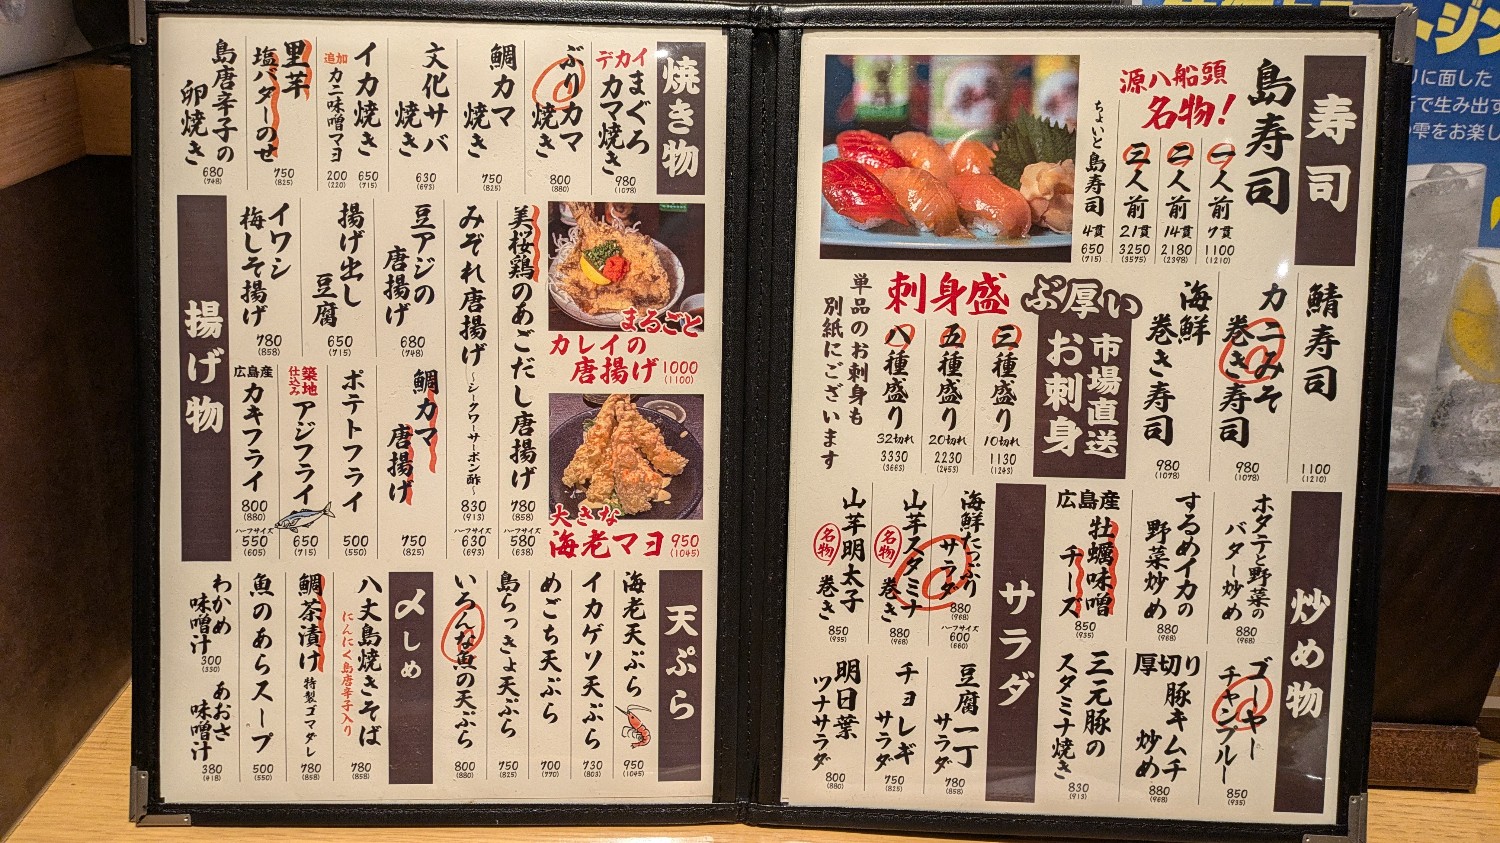 寿司
島寿司
源八船頭
名物!
一人前
7貫
1100
(1210)
二人前
14貫
2180
(2398)
三人前
21貫
3250
(3575)
ちょいと島寿司
4貫
650
(715)
鯖寿司
1100
(1210)
カニみそ
巻き寿司
980
(1078)
海鮮
巻き寿司
980
(1078)
ぶ厚い
市場直送
お刺身
刺身盛
三種盛り
10切れ
1130
(1243)
五種盛り
20切れ
2230
(2453)
八種盛り
32切れ
3330
(3663)
単品のお刺身も
別紙にございます
炒め物
ホタテと野菜の
バター炒め
880
(968)
するめイカの
野菜炒め
880
(968)
広島産
牡蠣味噌
チーズ
850
(935)
ゴーヤー
チャンプルー
850
(935)
厚切り豚キムチ
炒め
880
(968)
三元豚の
スタミナ焼き
830
(913)
サラダ
海鮮たっぷり
サラダ
880
(968)
ハーフサイズ
600
(660)
山芋スタミナ
巻き
名物
880
(968)
山芋明太子
巻き
名物
850
(935)
豆腐一丁
サラダ
780
(858)
チョレギ
サラダ
750
(825)
明日葉
ツナサラダ
800
(880)
焼き物
デカイ
まぐろ
カマ焼き
980
(1078)
ぶりカマ
焼き
800
(880)
鯛カマ
焼き
750
(825)
文化サバ
焼き
630
(693)
イカ焼き
650
(715)
追加
カニ味噌マヨ
200
(220)
里芋
塩バターのせ
750
(825)
島唐辛子の
卵焼き
680
(748)
揚げ物
まるごと
カレイの
唐揚げ
1000
(1100)
大きな
海老マヨ
950
(1045)
美桜鶏のあごだし唐揚げ
780
(858)
ハーフサイズ
580
(638)
みぞれ唐揚げ
~シークワーサーポン酢~
830
(913)
ハーフサイズ
630
(693)
豆アジの
唐揚げ
680
(748)
揚げ出し
豆腐
650
(715)
イワシ
梅しそ揚げ
780
(858)
鯛カマ
唐揚げ
750
(825)
ポテトフライ
500
(550)
築地
仕込み
アジフライ
650
(715)
広島産
カキフライ
800
(880)
ハーフサイズ
550
(605)
天ぷら
海老天ぷら
950
(1045)
イカゲソ天ぷら
730
(803)
めごち天ぷら
700
(770)
島らっきょ天ぷら
750
(825)
いろんな魚の天ぷら
800
(880)
〆しめ
八丈島焼きそば
にんにく島唐辛子入り
780
(858)
鯛茶漬け
特製ゴマダレ
780
(858)
魚のあらスープ
500
(550)
わかめ
味噌汁
300
(330)
あおさ
味噌汁
380
(418)
ージン
に面した
で生み出す
雫をお楽し